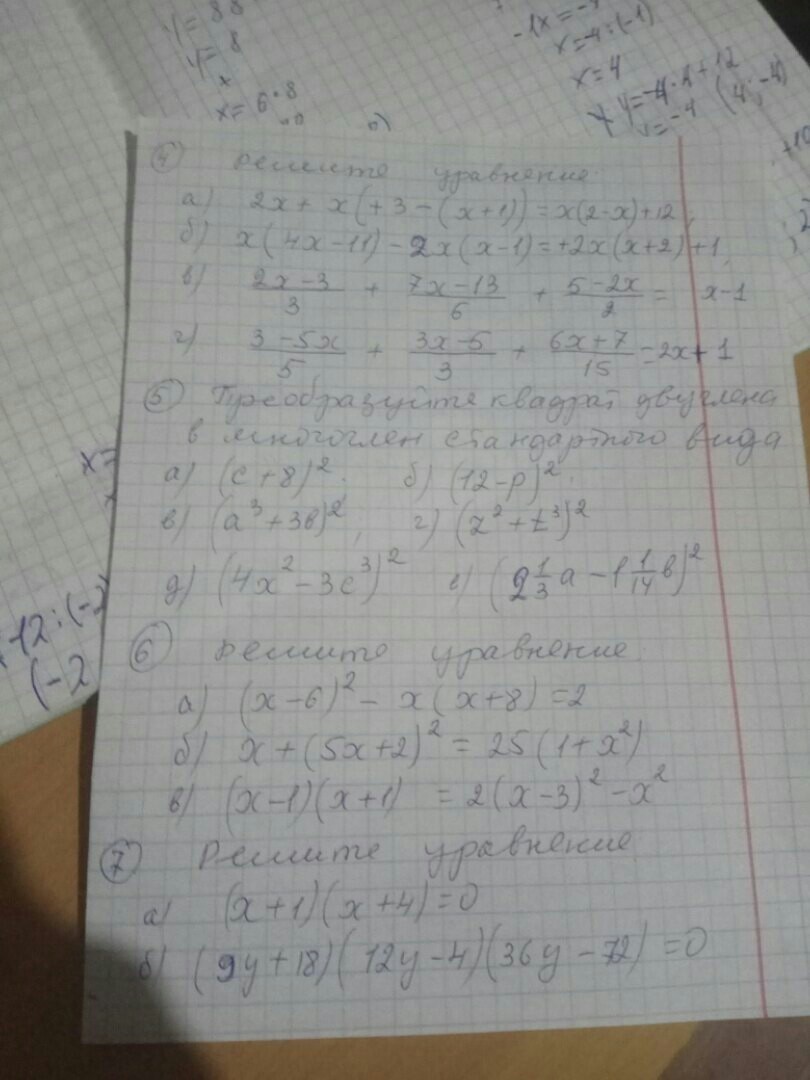 y = 88
y = 8
x
x = 6·8
-1x = -4
x = -4:(-1)
x = 4
y = -4·4+12
(4; -4)
= -4
④ Решите уравнение
а) 2x + x(+3-(x+1)) = x(2-x)+12,
б) x(4x-11) - 2x(x-1) = +2x(x+2)+1,
в) (2x-3)/3 + (7x-13)/6 + (5-2x)/2 = x-1
г) (3-5x)/5 + (3x-5)/3 + (6x+7)/15 = 2x+1
⑤ Преобразуйте квадрат двучлена
в многочлен стандартного вида
а) (c+8)²; б) (12-p)²;
в) (a³+3b)², г) (z²+t³)²
д) (4x²-3c³)² е) (2 1/3 a - 1 1/14 b)²
⑥ Решите уравнение
а) (x-6)² - x(x+8) = 2
б) x+(5x+2)² = 25(1+x²)
в) (x-1)(x+1) = 2(x-3)² - x²
⑦ Решите уравнение
а) (x+1)(x+4) = 0
б) (9y+18)(12y-4)(36y-72) = 0
x=
-12:(-2)
(-2